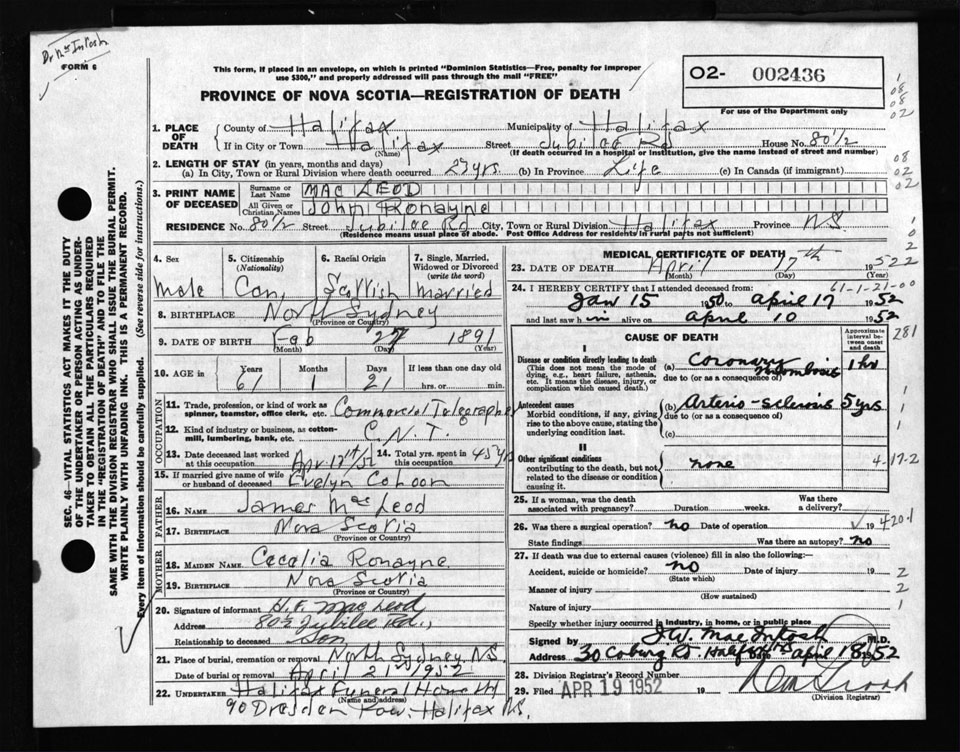 Dr McIntosh
FORM 6
This form, if placed in an envelope, on which is printed "Dominion Statistics—Free, penalty for improper
use $300," and properly addressed will pass through the mail "FREE"
O2- 002436
PROVINCE OF NOVA SCOTIA—REGISTRATION OF DEATH
For use of the Department only
1. PLACE OF DEATH
County of Halifax Municipality of Halifax
If in City or Town Halifax Street Jubilee Rd House No. 80 1/2
(Name) (If death occurred in a hospital or institution, give the name instead of street and number)
2. LENGTH OF STAY (in years, months and days)
(a) In City, Town or Rural Division where death occurred 27 yrs. (b) In Province Life (c) In Canada (if immigrant)
3. PRINT NAME OF DECEASED
Surname or Last Name MAC LEOD
All Given or Christian Names John Ronayne
RESIDENCE No. 80 1/2 Street Jubilee Rd City, Town or Rural Division Halifax Province N.S.
(Residence means usual place of abode. Post Office Address for residents in rural parts not sufficient)
4. Sex Male
5. Citizenship (Nationality) Can.
6. Racial Origin Scottish
7. Single, Married, Widowed or Divorced (write the word) Married
8. BIRTHPLACE North Sydney
(Province or Country)
9. DATE OF BIRTH Feb 27 1891
(Month) (Day) (Year)
10. AGE in Years 61 Months 1 Days 21 If less than one day old hrs. or min.
OCCUPATION
11. Trade, profession, or kind of work as spinner, teamster, office clerk, etc. Commercial Telegrapher
12. Kind of industry or business, as cotton-mill, lumbering, bank, etc. C.N.T.
13. Date deceased last worked at this occupation Apr 17th/52
14. Total yrs. spent in this occupation 45 yrs
15. If married give name of wife or husband of deceased Evelyn Cohoon
FATHER
16. NAME James MacLeod
17. BIRTHPLACE Nova Scotia
(Province or Country)
MOTHER
18. MAIDEN NAME Cecalia Ronayne
19. BIRTHPLACE Nova Scotia
(Province or Country)
20. Signature of informant H.F. MacLeod
Address 80 1/2 Jubilee Rd.,
Relationship to deceased Son
21. Place of burial, cremation or removal North Sydney N.S.
Date of burial or removal April 21 - 1952
22. UNDERTAKER Halifax Funeral Home Ltd
(Name and address)
90 Dresden Row. Halifax N.S.
MEDICAL CERTIFICATE OF DEATH
23. DATE OF DEATH April 17th 1952
(Month) (Day) (Year)
24. I HEREBY CERTIFY that I attended deceased from: 61-1-21-00
Jan 15 1950 to April 17 1952
and last saw him alive on April 10 1952
CAUSE OF DEATH
Approximate interval between onset and death
I
Disease or condition directly leading to death
(This does not mean the mode of dying, e.g., heart failure, asthenia, etc. It means the disease, injury, or complication which caused death.)
(a) Coronary thrombosis 1 hr
due to (or as a consequence of)
Antecedent causes
Morbid conditions, if any, giving rise to the above cause, stating the underlying condition last.
(b) Arterio-sclerosis 5 yrs
due to (or as a consequence of)
(c)
II
Other significant conditions
contributing to the death, but not related to the disease or condition causing it.
none
4-17-2
25. If a woman, was the death associated with pregnancy? Duration weeks. Was there a delivery?
26. Was there a surgical operation? no Date of operation 19
420.1
State findings Was there an autopsy? no
27. If death was due to external causes (violence) fill in also the following:—
Accident, suicide or homicide? no Date of injury 19
(State which)
Manner of injury
(How sustained)
Nature of injury
Specify whether injury occurred in industry, in home, or in public place
Signed by J.W. MacIntosh M.D.
Address 30 Coburg Rd. Halifax NS Date April 18 1952
28. Division Registrar's Record Number
29. Filed APR 19 1952 19
(Division Registrar)
SEC. 46—VITAL STATISTICS ACT MAKES IT THE DUTY
OF THE UNDERTAKER OR PERSON ACTING AS UNDER-
TAKER TO OBTAIN ALL THE PARTICULARS REQUIRED
IN THE "REGISTRATION OF DEATH" AND TO FILE THE
SAME WITH THE DIVISION REGISTRAR WHO SHALL ISSUE THE BURIAL PERMIT.
WRITE PLAINLY WITH UNFADING INK. THIS IS A PERMANENT RECORD.
Every item of information should be carefully supplied. (See reverse side for instructions.)
1
08
08
02
08
02
02
281
2
2
1